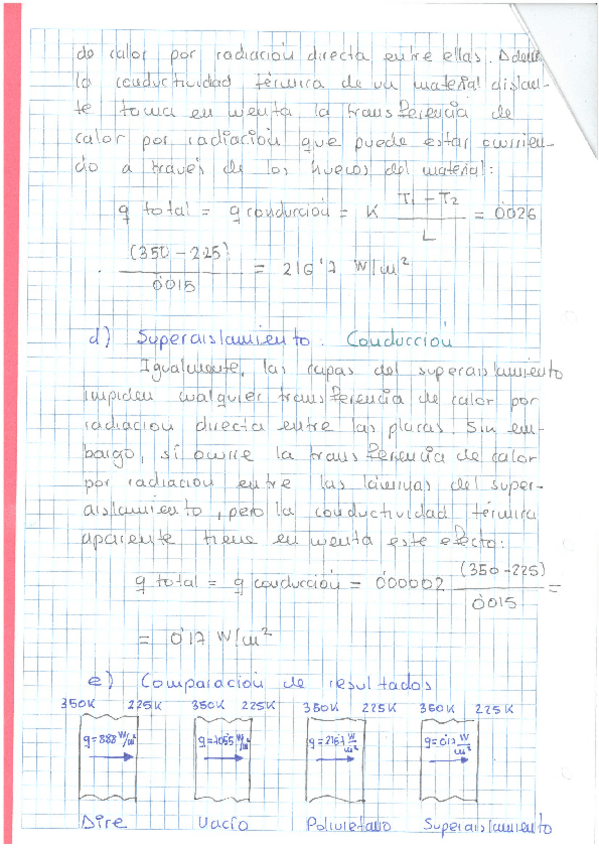 de calor por radiación directa entre ellas. Adem
la conductividad térmica de un material aislan-
te toma en cuenta la transferencia de
calor por radiación que puede estar ocurrien-
do a través de los huecos del material:
q total = q conducción = K (T1 - T2) / L = 0'026
· (350 - 225) / 0'015 = 216'7 W/m²
d) Superaislamiento. Conducción
Igualmente, las capas del superaislamiento
impiden cualquier transferencia de calor por
radiación directa entre las placas. Sin em-
bargo, si ocurre la transferencia de calor
por radiación entre las láminas del super-
aislamiento, pero la conductividad térmica
aparente tiene en cuenta este efecto:
q total = q conducción = 0'00002 (350 - 225) / 0'015 =
= 0'17 W/m²
e) Comparación de resultados
350K 225K 350K 225K 350K 225K 350K 225K
q=888 W/m² q=7055 W/m² q=216'7 W/m² q=0'17 W/m²
Aire Vacío Poliuretano Superaislamiento